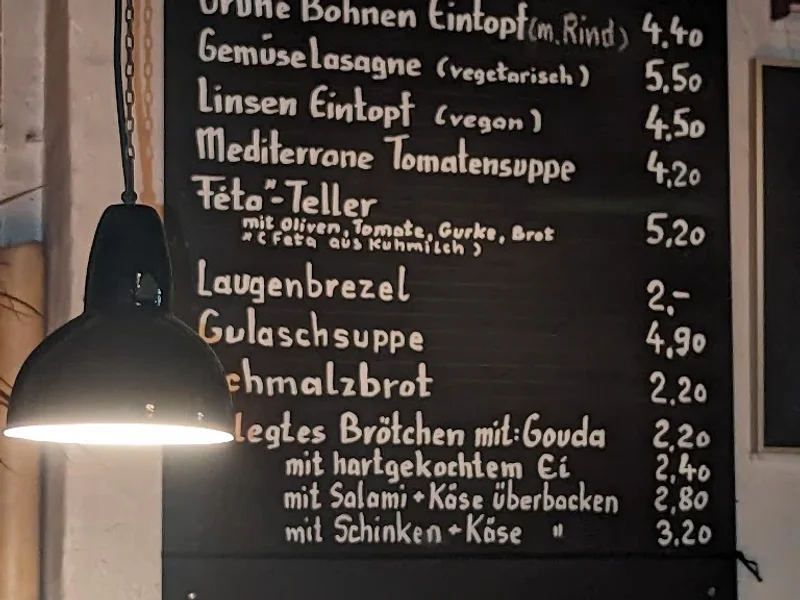 Grüne Bohnen Eintopf (m. Rind) 4.40
Gemüselasagne (vegetarisch) 5,50
Linsen Eintopf (vegan) 4.50
Mediterrane Tomatensuppe 4,20
Feta*-Teller 5,20
mit Oliven, Tomate, Gurke, Brot
*( Feta aus Kuhmilch )
Laugenbrezel 2,-
Gulaschsuppe 4,90
chmalzbrot 2.20
legtes Brötchen mit: Gouda 2,20
mit hartgekochtem Ei 2,40
mit Salami + Käse überbacken 2,80
mit Schinken + Käse " 3,20